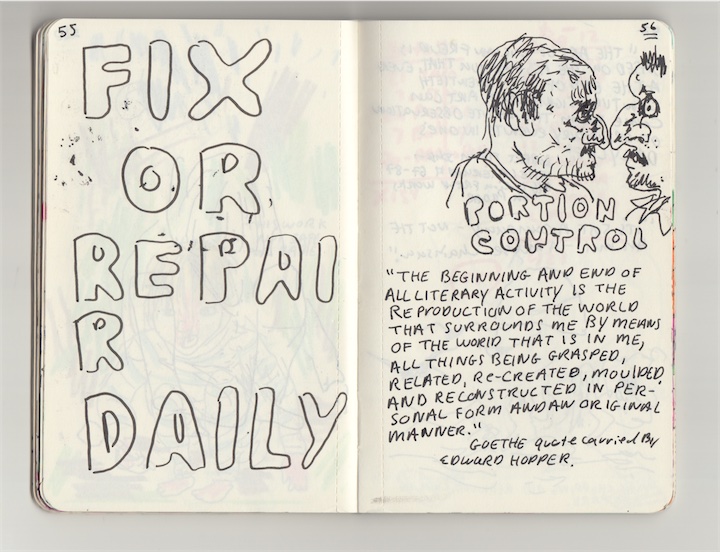 55
FIX
OR
REPAI
R
DAILY
56
PORTION
CONTROL
"THE BEGINNING AND END OF
ALL LITERARY ACTIVITY IS THE
REPRODUCTION OF THE WORLD
THAT SURROUNDS ME BY MEANS
OF THE WORLD THAT IS IN ME,
ALL THINGS BEING GRASPED,
RELATED, Re-CREATED, MOULDED
AND RECONSTRUCTED IN PER-
SONAL FORM AND AN ORIGINAL
MANNER."
GOETHE quote carried By
EDWARD HOPPER.